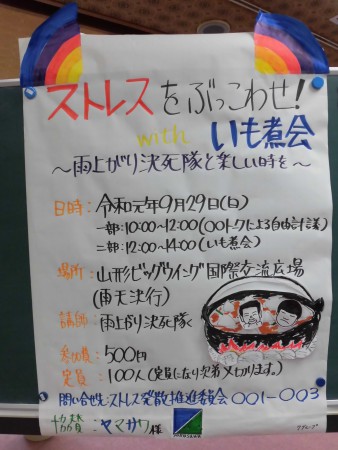 ストレスをぶっこわせ!
with いも煮会
~雨上がり決死隊と楽しい時を~
日時:令和元年9月29日(日)
一部:10:00~12:00(〇〇トークによる自由討議)
二部:12:00~14:00(いも煮会)
場所:山形ビッグウイング国際交流広場
(雨天決行)
講師:雨上がり決死隊
参加費:500円
定員:100人(定員になり次第〆切ります。)
問い合せ先:ストレス発散推進委員会 001-003
協賛:ヤマザワ様